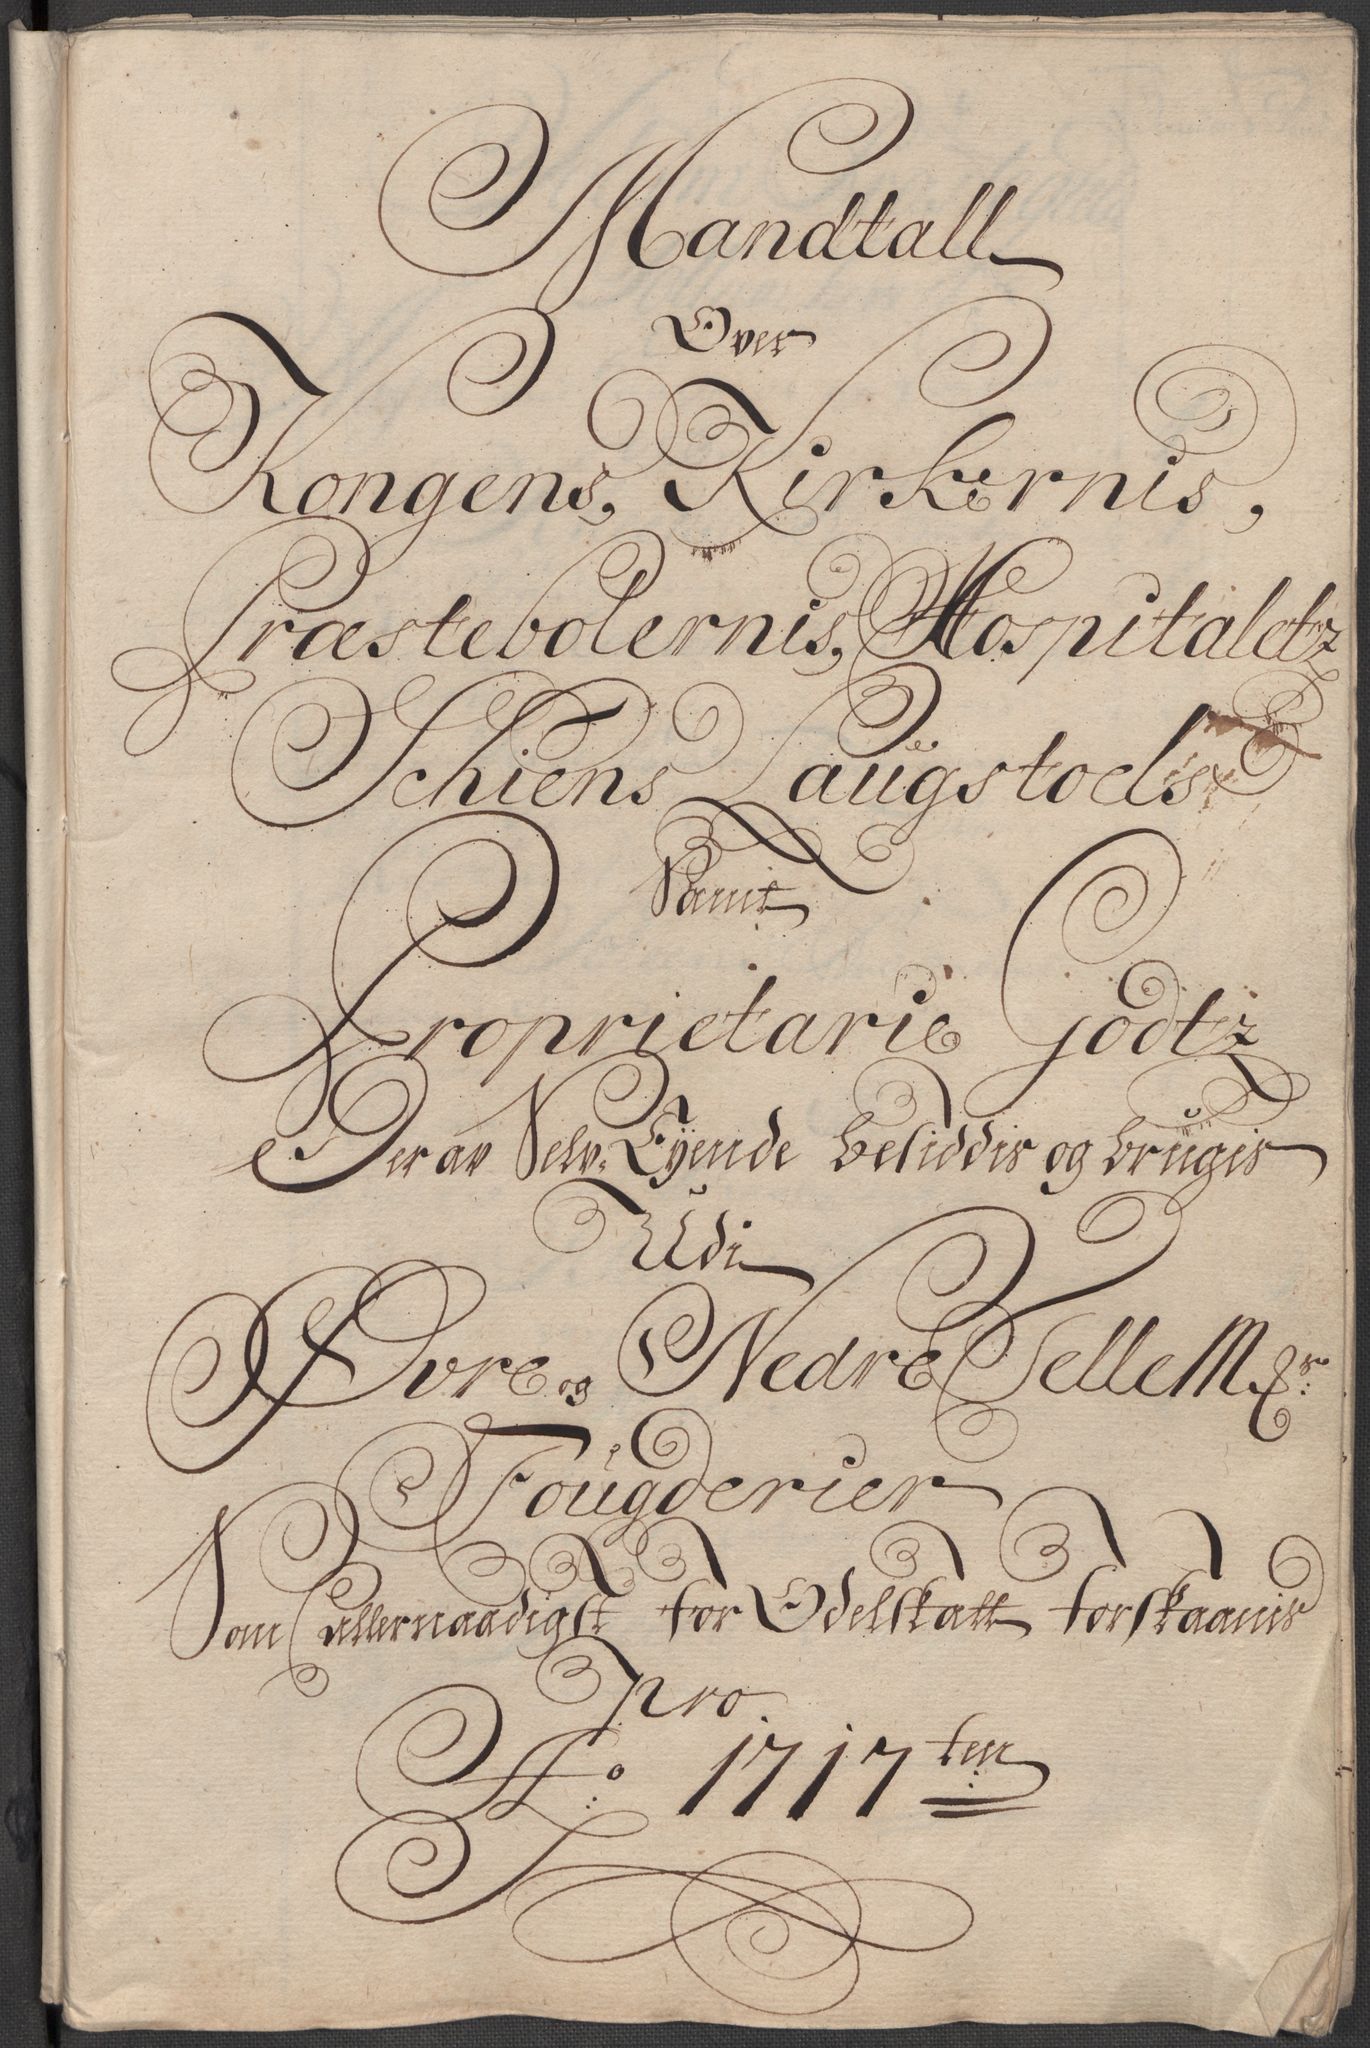 Mandtall
Over
Kongens, Kirkernis,
Præstebolernis, Hospitaletz
Schiens Laugstoels
Samt
Proprietarie Godtz
Der av Selv-Eyende besiddis og brugis
Udi
Øvre og Nedre TelleM
Fougderier
Som allernaadigst for Odelskatt forskaanis
pro
Ao: 1717ten